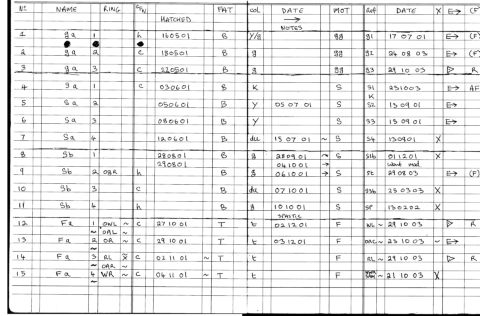 No NAME RING C/N HATCHED FAT col DATE → NOTES MOT Ref DATE X E→ (F)
1 ga 1 h 160501 B y/g gg g1 17 07 01 E→ (F)
2 ga 2 c 180501 B g gg g2 24 08 03 E→ (F)
3 ga 3 c 220501 B g gg g3 29 10 03 ▷ R
4 Sa 1 c 030601 B K S S1 231003 E→ AF
K
5 Sa 2 050601 B y 05 07 01 S S2 13 09 01 E→
6 Sa 3 080601 B y S S3 15 09 01 E→
7 Sa 4 120601 B du 15 07 01 ~ S S4 130901 X
8 Sb 1 280801 B g 280901 → S S1b 011201 X
290801 041001 →
9 Sb 2 OBR h B g 061001 → S S2 290803 E→ (F)
10 Sb 3 c B du 071001 S S3b 250303 X
11 Sb 4 h B g 101001 S SP 130202 X
12 Fa 1 OWL ~ c 271001 T t 021201 F WL ~ 291003 ▷ R
~ OAL ~
13 Fa 2 OR ~ c 291001 T t 031201 F OAC ~ 231003 ~ E→
14 Fa 3 RL c 021101 ~ T t F RL ~ 291003 ▷ R
~ OAR ~
15 Fa 4 WR ~ c 041101 ~ T t F ~ 211003 X
~